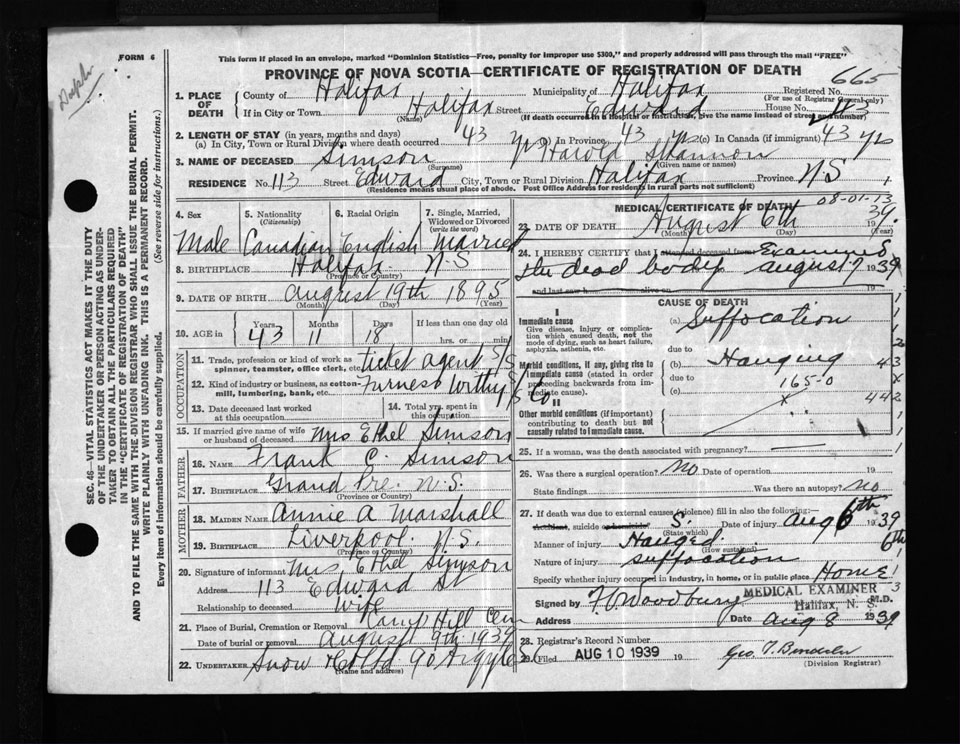 FORM 6
This form if placed in an envelope, marked "Dominion Statistics—Free, penalty for improper use $300," and properly addressed will pass through the mail "FREE"
PROVINCE OF NOVA SCOTIA—CERTIFICATE OF REGISTRATION OF DEATH
665
1. PLACE OF DEATH
County of Halifax Municipality of Halifax Registered No.
(For use of Registrar General only)
If in City or Town Halifax Street Edward House No. 113
(Name) (If death occurred in a hospital or institution, give the name instead of street and number)
2. LENGTH OF STAY (in years, months and days)
(a) In City, Town or Rural Division where death occurred 43 yrs (b) In Province 43 yrs (c) In Canada (if immigrant) 43 yrs
3. NAME OF DECEASED Simson Harold Shannon
(Surname) (Given name or names)
RESIDENCE No. 113 Street Edward City, Town or Rural Division Halifax Province N.S.
(Residence means usual place of abode. Post Office Address for residents in rural parts not sufficient)
SEC. 46—VITAL STATISTICS ACT MAKES IT THE DUTY
OF THE UNDERTAKER OR PERSON ACTING AS UNDER-
TAKER TO OBTAIN ALL THE PARTICULARS REQUIRED
IN THE "CERTIFICATE OF REGISTRATION OF DEATH"
AND TO FILE THE SAME WITH THE DIVISION REGISTRAR WHO SHALL ISSUE THE BURIAL PERMIT.
WRITE PLAINLY WITH UNFADING INK. THIS IS A PERMANENT RECORD.
Every item of information should be carefully supplied. (See reverse side for instructions.)
4. Sex 5. Nationality (Citizenship) 6. Racial Origin 7. Single, Married, Widowed or Divorced (write the word)
Male Canadian English Married
8. BIRTHPLACE Halifax N.S.
(Province or Country)
9. DATE OF BIRTH August 19th 1895
(Month) (Day) (Year)
10. AGE in Years Months Days If less than one day old
43 11 18 hrs. or min.
OCCUPATION
11. Trade, profession or kind of work as spinner, teamster, office clerk, etc. ticket agent S/S
12. Kind of industry or business, as cotton-mill, lumbering, bank, etc. Furness Withy S Co
13. Date deceased last worked at this occupation
14. Total yrs. spent in this occupation
15. If married give name of wife or husband of deceased Mrs Ethel Simson
FATHER
16. NAME Frank C. Simson
17. BIRTHPLACE Grand Pre. N.S.
(Province or Country)
MOTHER
18. MAIDEN NAME Annie A Marshall
19. BIRTHPLACE Liverpool. N.S.
(Province or Country)
20. Signature of informant Mrs. Ethel Simson
Address 113 Edward St
Relationship to deceased Wife
21. Place of Burial, Cremation or Removal Camp Hill Cem
Date of burial or removal August 9th 1939
22. UNDERTAKER Snow & Co Ltd 90 Argyle St
08-01-13
MEDICAL CERTIFICATE OF DEATH
23. DATE OF DEATH August 6th 39.
(Month) (Day) (Year)
24. I HEREBY CERTIFY that I attended deceased from Examined
the dead body August 7 1939
and last saw h alive on 19
CAUSE OF DEATH
I
Immediate cause
Give disease, injury or complication which caused death, not the mode of dying, such as heart failure, asphyxia, asthenia, etc.
(a) Suffocation
due to
Morbid conditions, if any, giving rise to immediate cause (stated in order proceeding backwards from immediate cause).
(b) Hanging
due to
165-0
(c)
II
Other morbid conditions (if important) contributing to death but not causally related to immediate cause.
43
x
442
25. If a woman, was the death associated with pregnancy?
26. Was there a surgical operation? No Date of operation 19
State findings Was there an autopsy? No
27. If death was due to external causes (violence) fill in also the following:
Accident, suicide or homicide? S. Date of injury Aug 6th 1939
(State which)
Manner of injury Hanged 6th
(How sustained)
Nature of injury Suffocation
Specify whether injury occurred in industry, in home, or in public place Home
Signed by F. Woodbury M.D.
MEDICAL EXAMINER
Halifax, N. S.
Address Date Aug 8 1939
28. Registrar's Record Number
29. Filed AUG 10 1939 19
(Division Registrar)